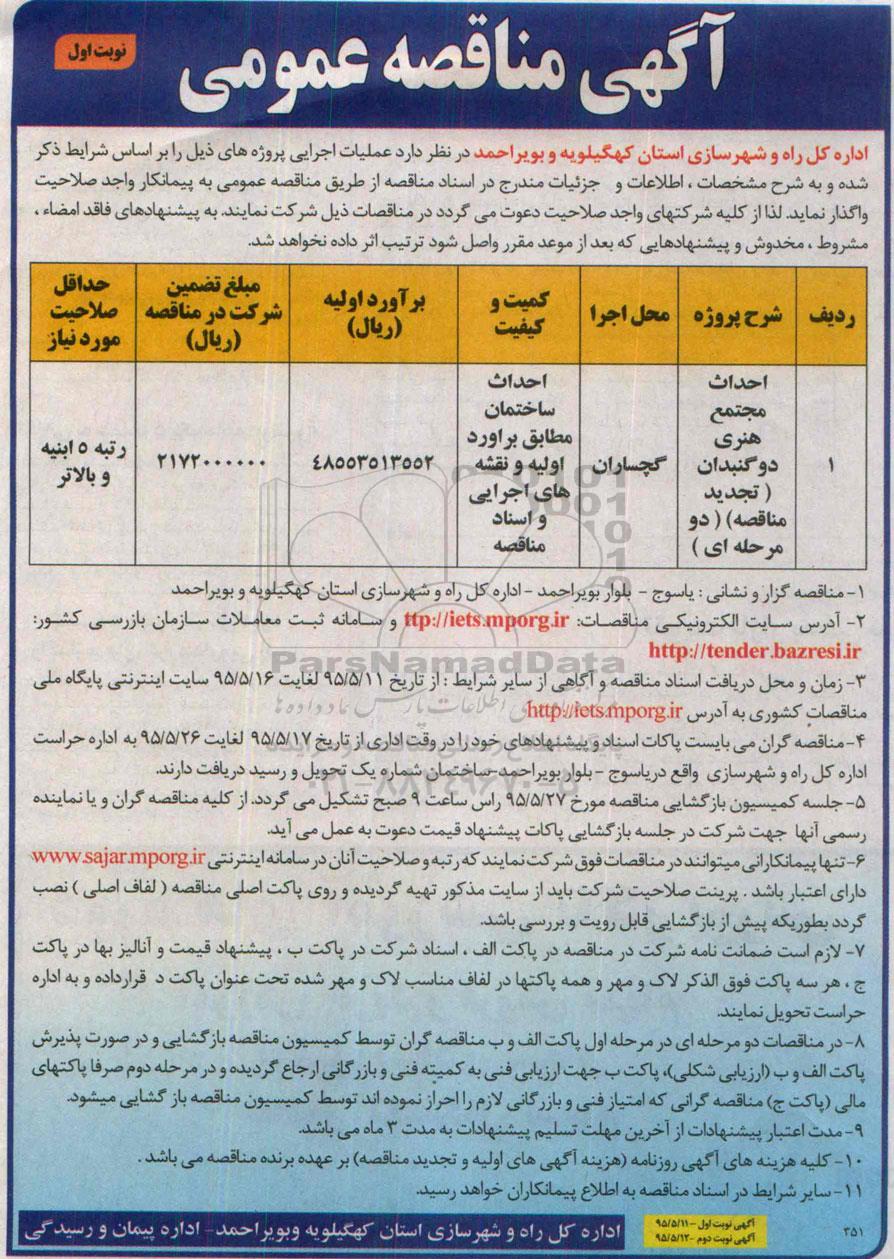 آگهی مناقصه عمومی
نوبت اول
اداره کل راه و شهرسازی استان کهگیلویه و بویراحمد در نظر دارد عملیات اجرایی پروژه های ذیل را بر اساس شرایط ذکر
شده و به شرح مشخصات ، اطلاعات و جزئیات مندرج در اسناد مناقصه از طریق مناقصه عمومی به پیمانکار واجد صلاحیت
واگذار نماید. لذا از کلیه شرکتهای واجد صلاحیت دعوت می گردد در مناقصات ذیل شرکت نمایند. به پیشنهادهای فاقد امضاء ،
مشروط ، مخدوش و پیشنهادهایی که بعد از موعد مقرر واصل شود ترتیب اثر داده نخواهد شد.
ردیف
شرح پروژه
محل اجرا
کمیت و
کیفیت
برآورد اولیه
(ریال)
مبلغ تضمین
شرکت در مناقصه
(ریال)
حداقل
صلاحیت
مورد نیاز
۱
احداث
مجتمع
هنری
دوگنبدان
( تجدید
مناقصه) ( دو
مرحله ای )
گچساران
احداث
ساختمان
مطابق براورد
اولیه و نقشه
های اجرایی
و اسناد
مناقصه
٤٨٥٥٣٥١٣٥٥٢
٢١٧٢٠٠٠٠٠٠
رتبه ٥ ابنیه
و بالاتر
۱- مناقصه گزار و نشانی : یاسوج - بلوار بویراحمد - اداره کل راه و شهرسازی استان کهگیلویه و بویراحمد
۲- آدرس سایت الکترونیکی مناقصات: ttp://iets.mporg.ir و سامانه ثبت معاملات سازمان بازرسی کشور:
http://tender.bazresi.ir
ParsNamadData
۳- زمان و محل دریافت اسناد مناقصه و آگاهی از سایر شرایط : از تاریخ ۹۵/۵/۱۱ لغایت ۹۵/۵/۱۶ سایت اینترنتی پایگاه ملی
مناقصات کشوری به آدرس http://iets.mporg.ir
۴- مناقصه گران می بایست پاکات اسناد و پیشنهادهای خود را در وقت اداری از تاریخ ۹۵/۵/۱۷ لغایت ۹۵/۵/۲۶ به اداره حراست
اداره کل راه و شهرسازی واقع دریاسوج - بلوار بویراحمد-ساختمان شماره یک تحویل و رسید دریافت دارند.
۵- جلسه کمیسیون بازگشایی مناقصه مورخ ۹۵/۵/۲۷ راس ساعت ۹ صبح تشکیل می گردد. از کلیه مناقصه گران و یا نماینده
رسمی آنها جهت شرکت در جلسه بازگشایی پاکات پیشنهاد قیمت دعوت به عمل می آید.
۶- تنها پیمانکارانی میتوانند در مناقصات فوق شرکت نمایند که رتبه و صلاحیت آنان در سامانه اینترنتی www.sajar.mporg.ir
دارای اعتبار باشد . پرینت صلاحیت شرکت باید از سایت مذکور تهیه گردیده و روی پاکت اصلی مناقصه ( لفاف اصلی ) نصب
گردد بطوریکه پیش از بازگشایی قابل رویت و بررسی باشد.
۷- لازم است ضمانت نامه شرکت در مناقصه در پاکت الف ، اسناد شرکت در پاکت ب ، پیشنهاد قیمت و آنالیز بها در پاکت
ج ، هر سه پاکت فوق الذکر لاک و مهر و همه پاکتها در لفاف مناسب لاک و مهر شده تحت عنوان پاکت د قرارداده و به اداره
حراست تحویل نمایند.
۸- در مناقصات دو مرحله ای در مرحله اول پاکت الف و ب مناقصه گران توسط کمیسیون مناقصه بازگشایی و در صورت پذیرش
پاکت الف و ب (ارزیابی شکلی)، پاکت ب جهت ارزیابی فنی به کمیته فنی و بازرگانی ارجاع گردیده و در مرحله دوم صرفا پاکتهای
مالی (پاکت ج) مناقصه گرانی که امتیاز فنی و بازرگانی لازم را احراز نموده اند توسط کمیسیون مناقصه باز گشایی میشود.
۹- مدت اعتبار پیشنهادات از آخرین مهلت تسلیم پیشنهادات به مدت ۳ ماه می باشد.
۱۰- کلیه هزینه های آگهی روزنامه (هزینه آگهی های اولیه و تجدید مناقصه) بر عهده برنده مناقصه می باشد .
۱۱- سایر شرایط در اسناد مناقصه به اطلاع پیمانکاران خواهد رسید.
۳۵۱
آگهی نوبت اول -۹۵/۵/۱۱
آگهی نوبت دوم -۹۵/۵/۱۲
اداره کل راه و شهرسازی استان کهگیلویه وبویراحمد- اداره پیمان و رسیدگی